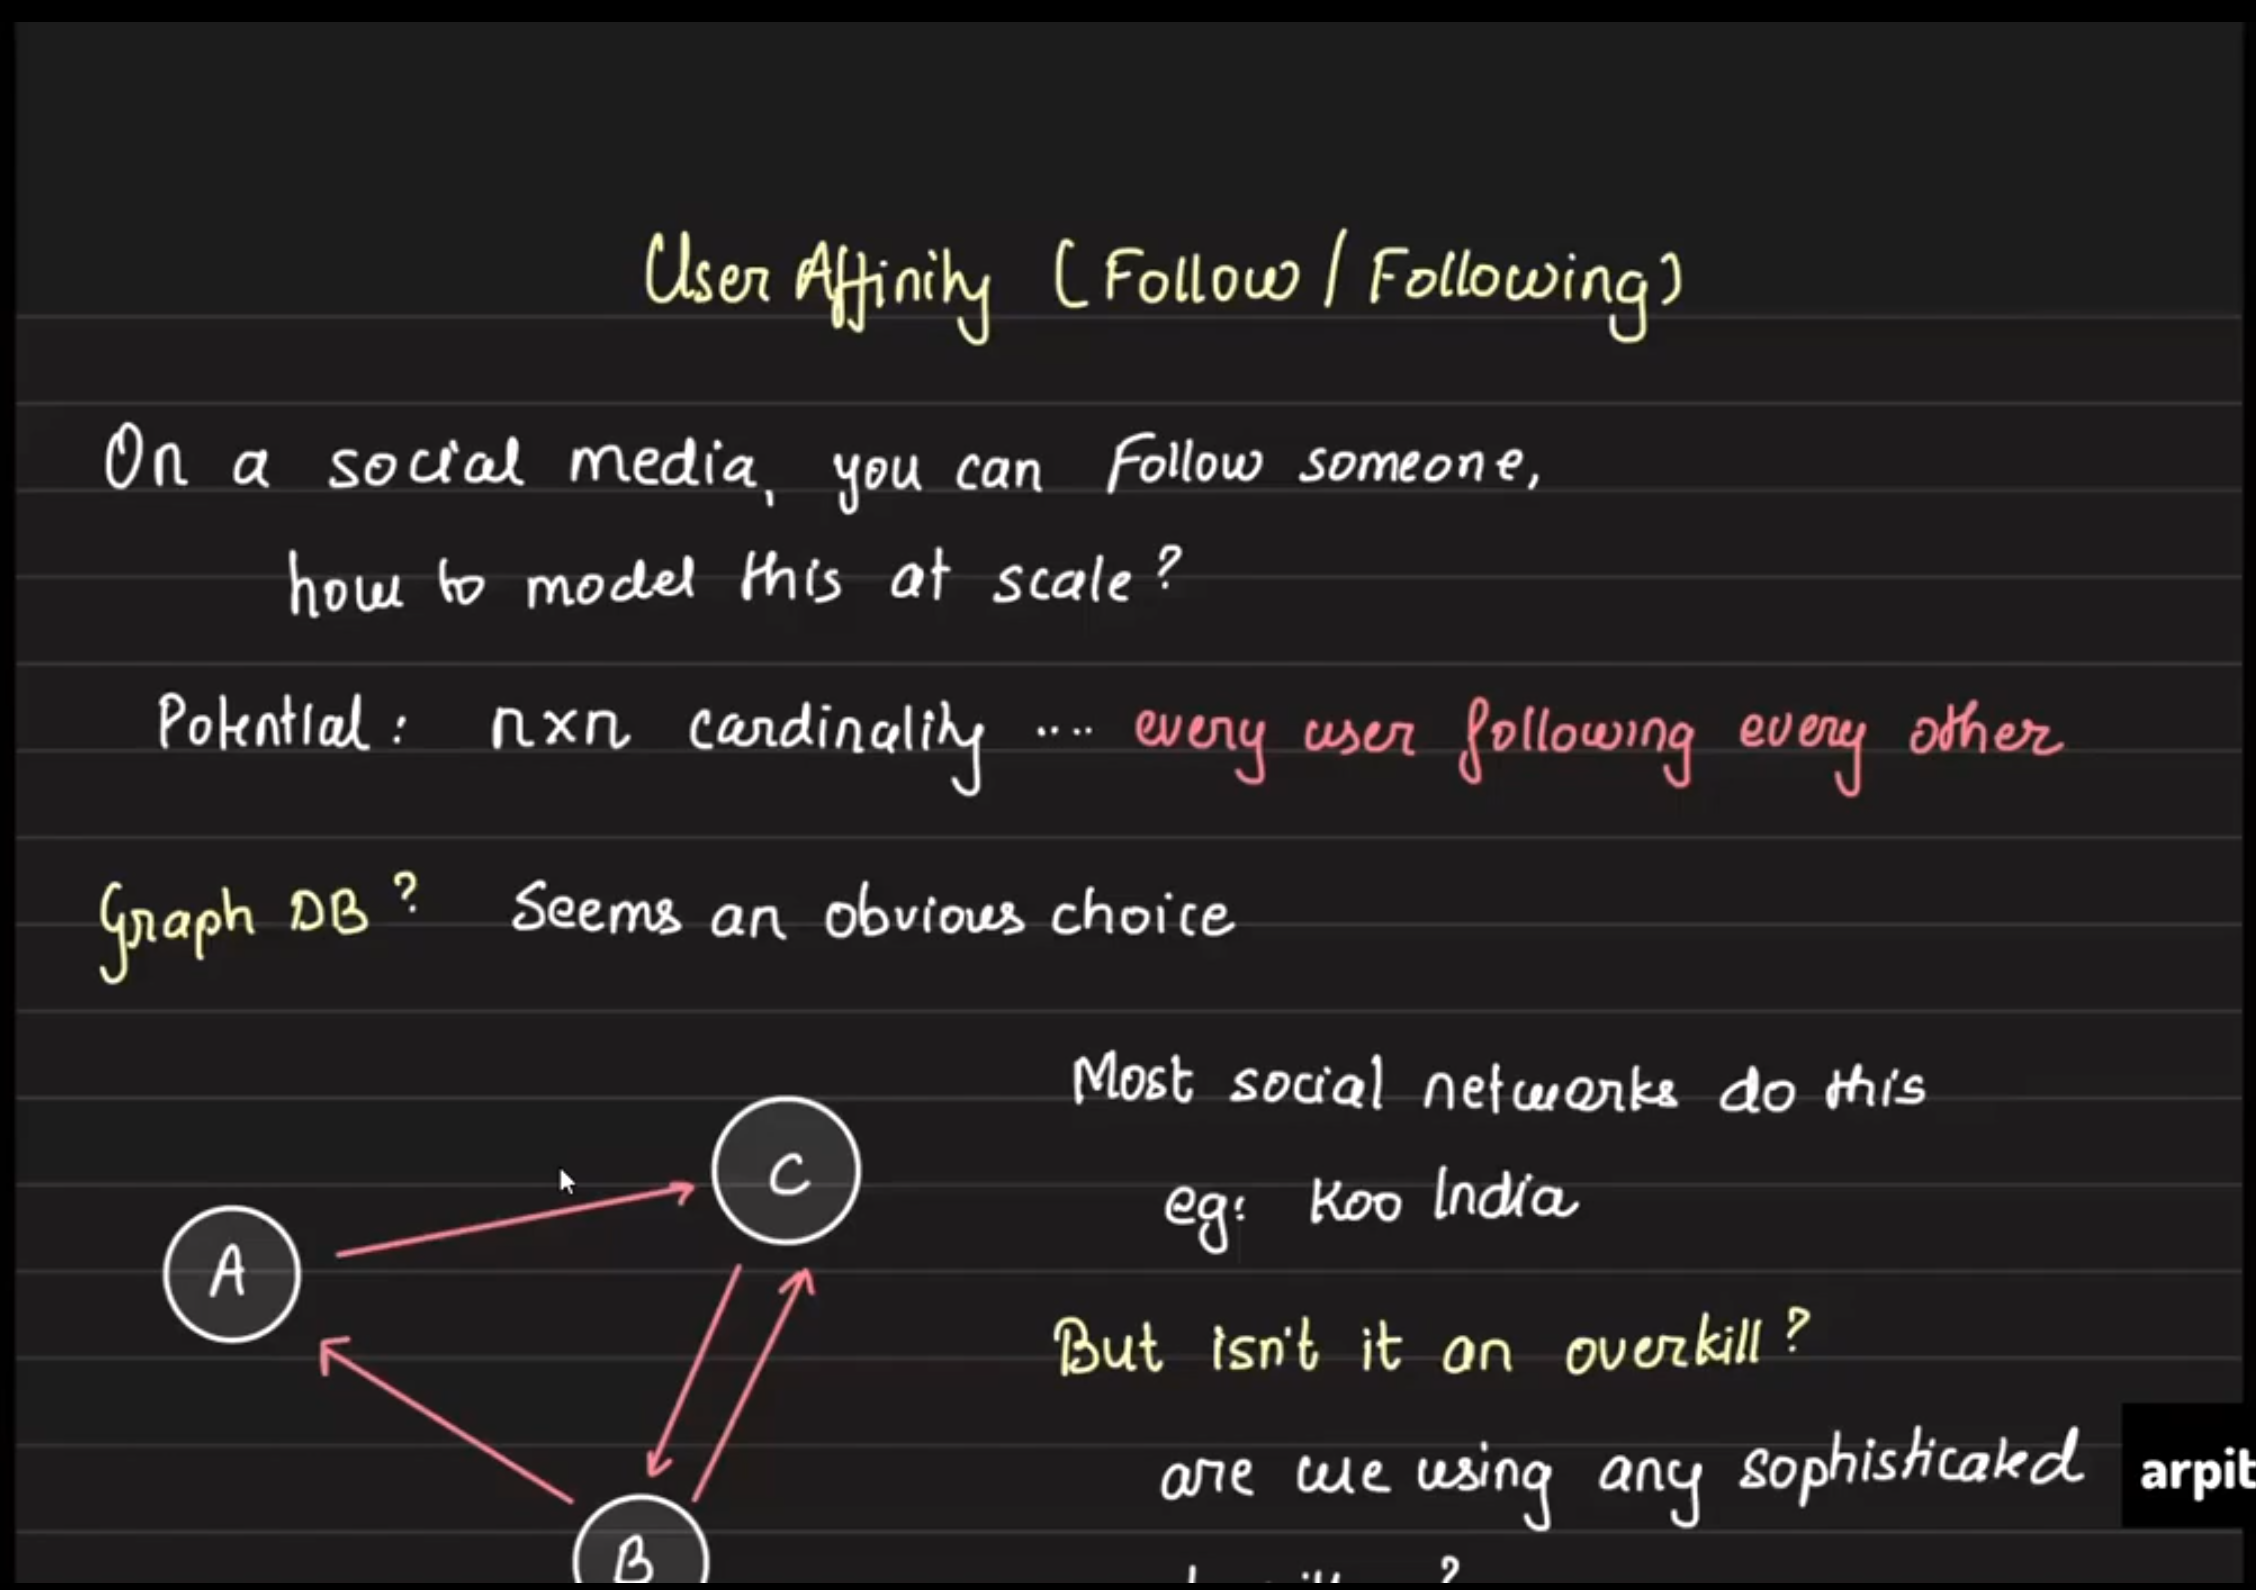 User Affinity (Follow / Following)
On a social media, you can Follow someone,
how to model this at scale?
Potential: nxn cardinality .... every user following every other
Graph DB? Seems an obvious choice
Most social networks do this
eg: Koo India
But isn't it an overkill?
are we using any sophisticated
A
C
B
arpit